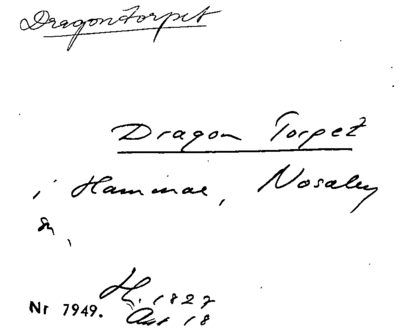 Dragontorpet
Dragon Torpet
i Hammar, Nosaby
Sn,
H. 1827
Nr 7949. Ant 18